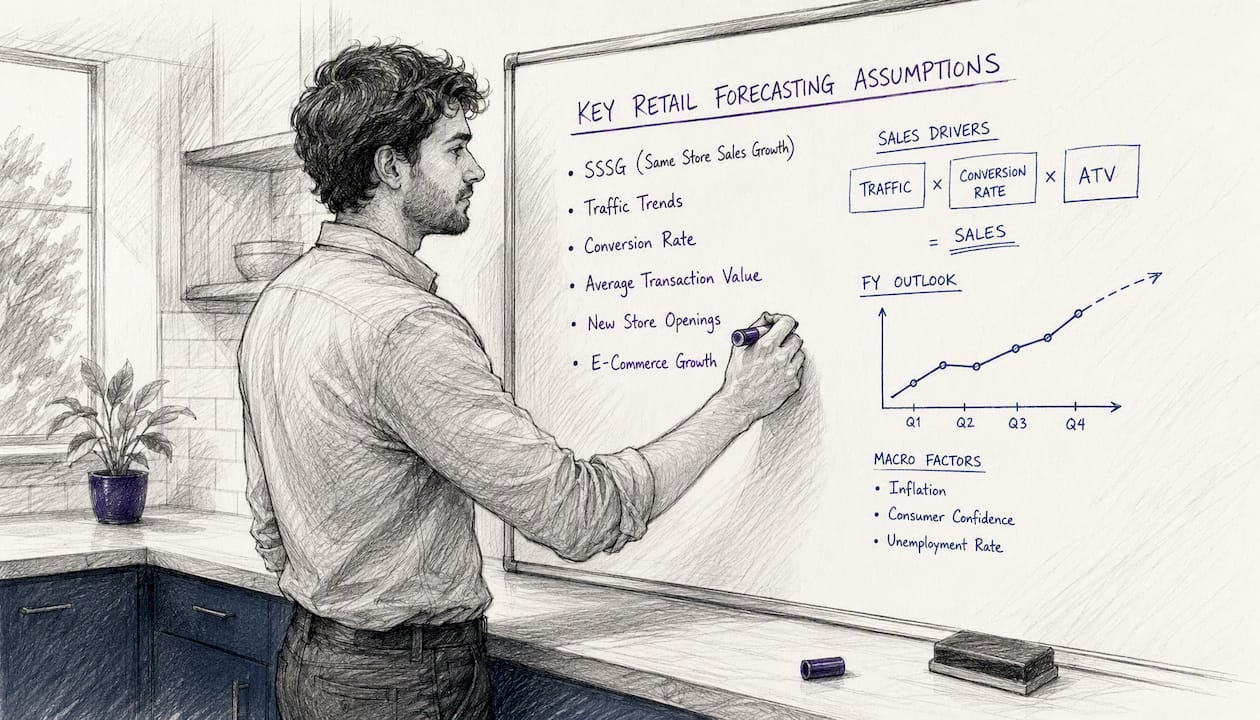 KEY RETAIL FORECASTING ASSUMPTIONS
• SSSG (Same Store Sales Growth)
• Traffic Trends
• Conversion Rate
• Average Transaction Value
• New Store Openings
• E-Commerce Growth
SALES DRIVERS
TRAFFIC × CONVERSION RATE × ATV
= SALES
FY OUTLOOK
Q1 Q2 Q3 Q4
MACRO FACTORS
• Inflation
• Consumer Confidence
• Unemployment Rate